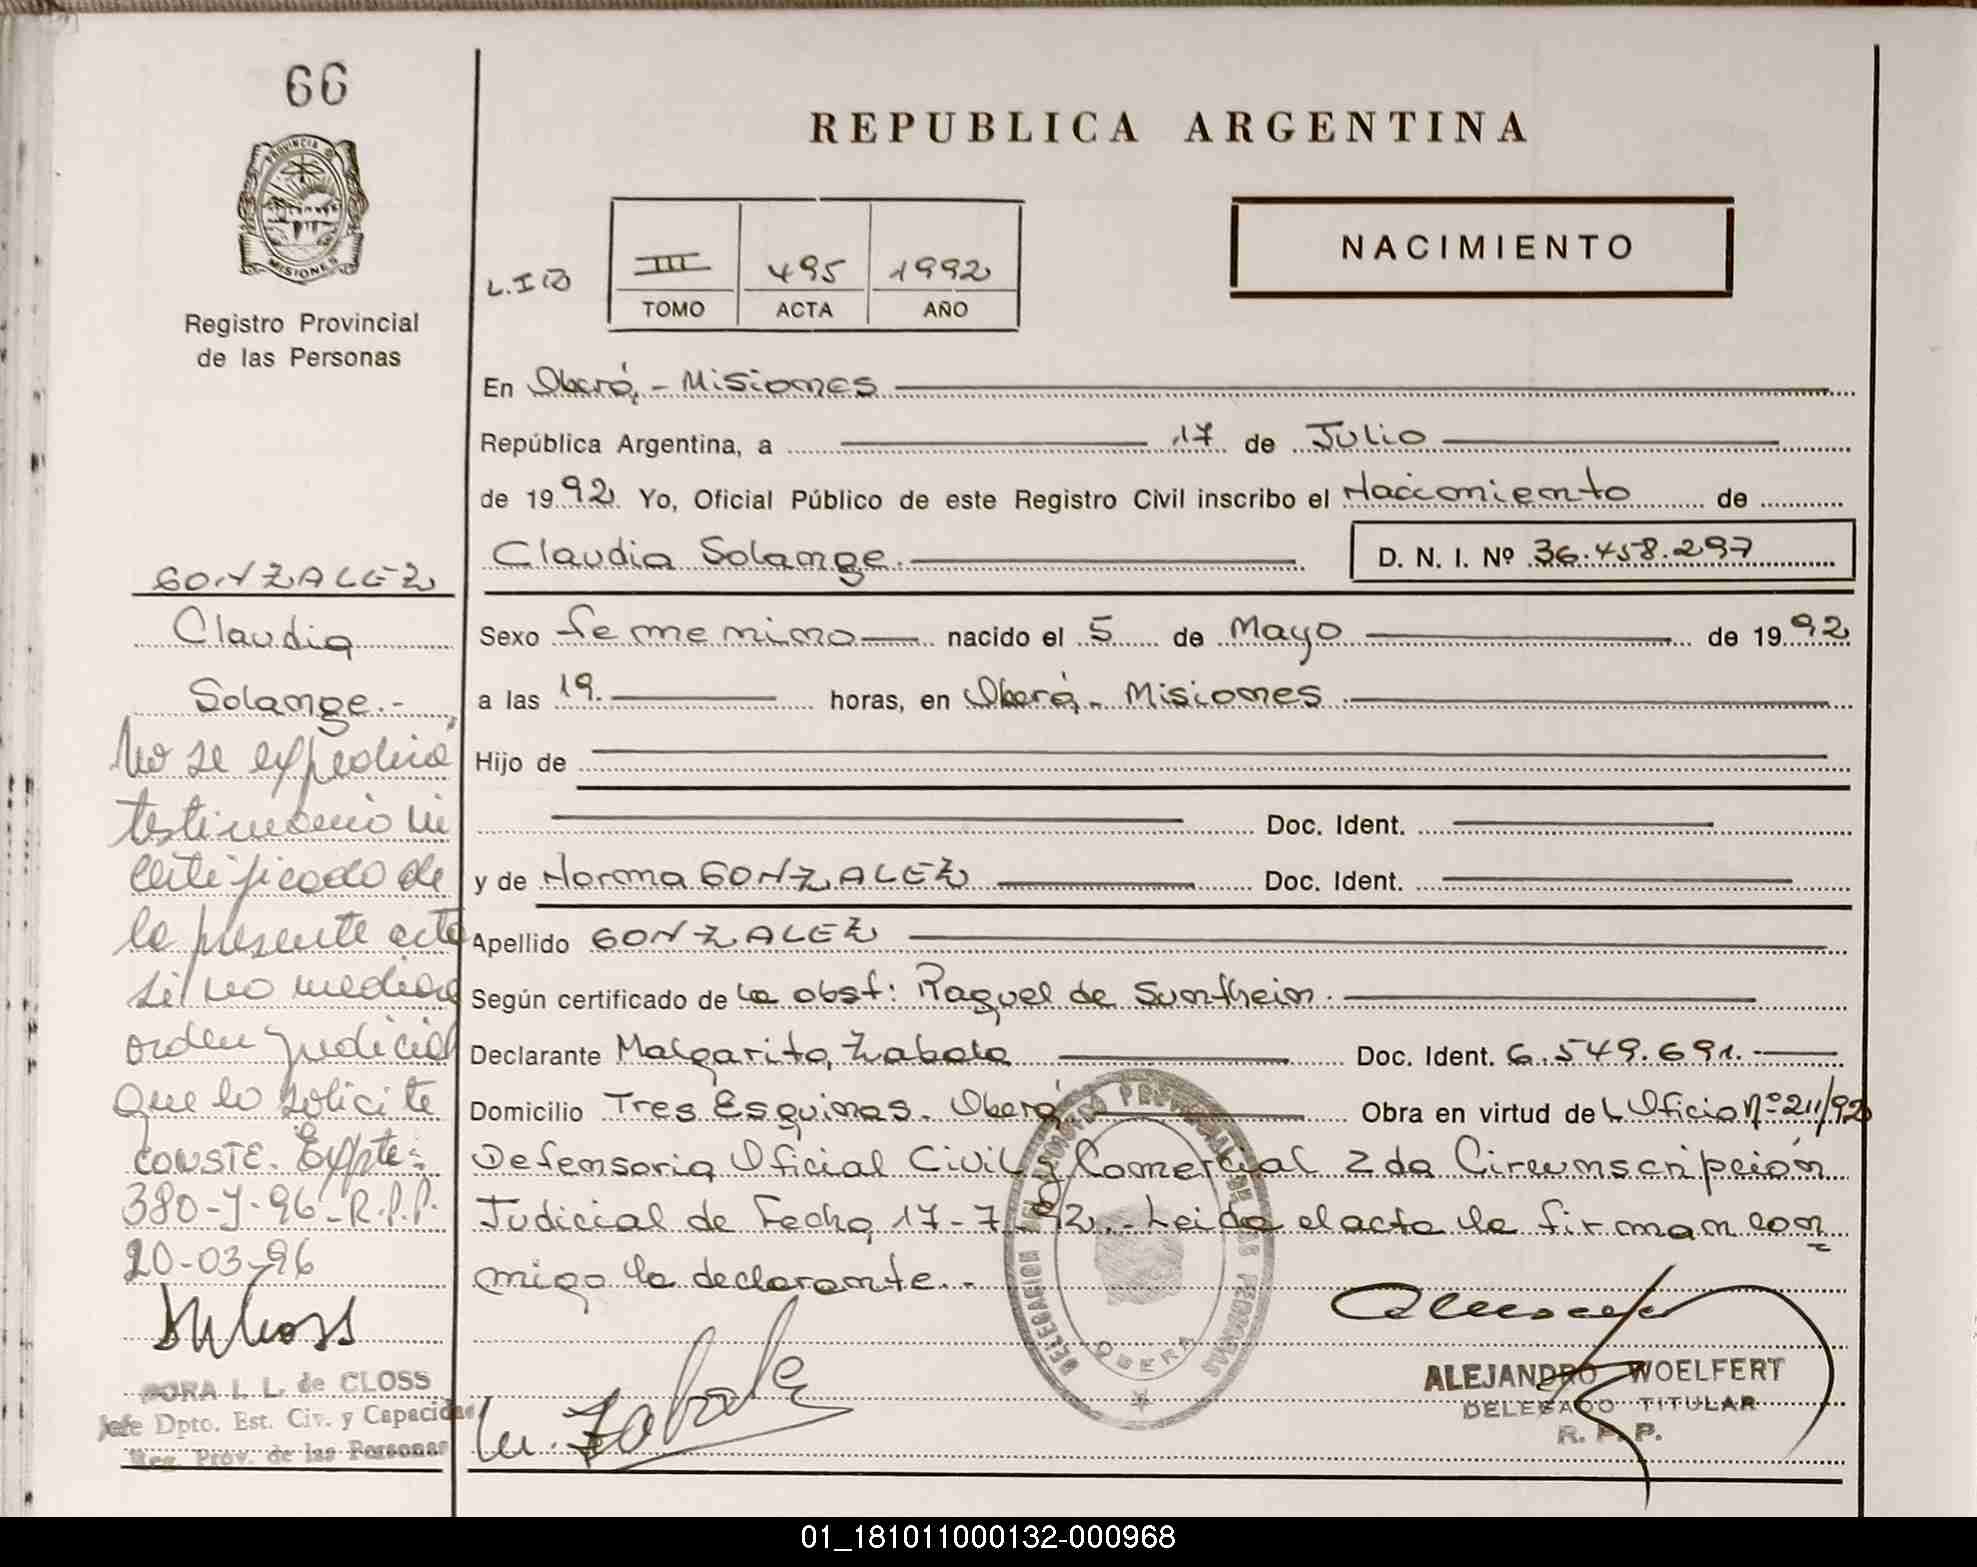 66
PROVINCIA D
MISIONES
Registro Provincial
de las Personas
REPUBLICA ARGENTINA
NACIMIENTO
III 495 1992
TOMO ACTA AÑO
En Oberá, - Misiones
República Argentina, a 17 de Julio
de 1992. Yo, Oficial Público de este Registro Civil inscribo el Nacimiento de
Claudia Solange. D. N. I. Nº 36.458.297
Sexo femenino nacido el 5 de Mayo de 1992
a las 19. horas, en Oberá,- Misiones
Hijo de
Doc. Ident.
y de Norma GONZALEZ Doc. Ident.
Apellido GONZALEZ
Según certificado de la obst: Raquel de Suntheim.
Declarante Malgarita Zabala Doc. Ident. 6.549.691.
Domicilio Tres Esquinas. Oberá Obra en virtud de L Oficio Nº 211/92
Defensoria Oficial Civil y Comercial 2da Circunscripción
Judicial de Fecha 17-7-92.-Leida el acta la firman con
migo la declarante.-
GONZALEZ
Claudia
Solange.-
No se expedirá
testimonio ni
certificado de
la presente acta
si no mediare
orden judicial
que lo solicite
CONSTE. Expte:
380-J-96-R.P.P.
20-03-96
DORA L. L. de CLOSS
Jefe Dpto. Est. Civ. y Capacidad
Reg. Prov. de las Personas
M. Zabala
DELEGACION DEL REGISTRO PROVINCIAL DE LAS PERSONAS
OBERA
ALEJANDRO WOELFERT
DELEGADO TITULAR
R. P. P.
01_181011000132-000968